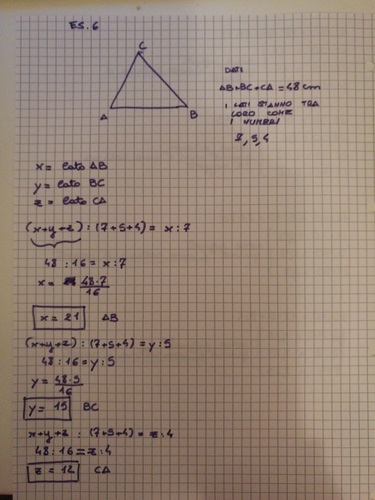 ES. 6
C
A
B
DATI
AB+BC+CA = 48 cm
I LATI STANNO TRA
LORO COME
I NUMERI
7, 5, 4
x = lato AB
y = lato BC
z = lato CA
(x+y+z) : (7+5+4) = x : 7
48 : 16 = x : 7
x = 48·7
16
x = 21 AB
(x+y+z) : (7+5+4) = y : 5
48 : 16 = y : 5
y = 48·5
16
y = 15 BC
x+y+z : (7+5+4) = z : 4
48 : 16 = z : 4
z = 12 CA